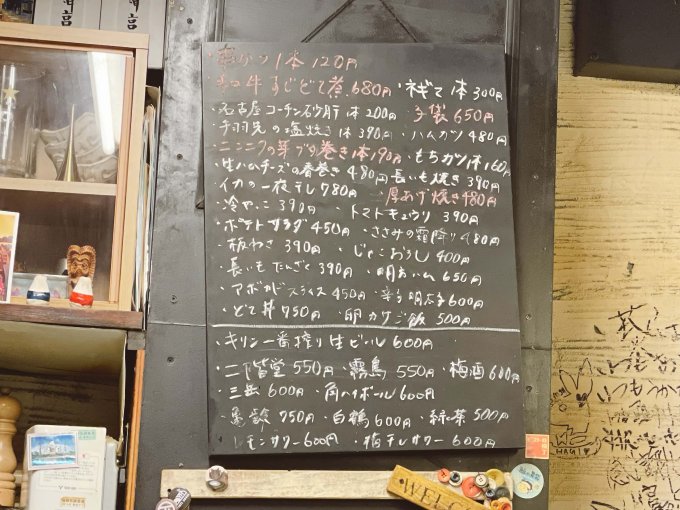 串かつ 1本 120円
和牛 すじどて煮 680円 ・ネギマ 1本 300円
・名古屋コーチン砂肝 1本 200円 ・子袋 650円
・手羽先の塩焼き 1本 390円 ・ハムカツ 480円
・ニンニクの芽の巻き 1本 190円 ・もちカツ 1本 160円
・生ハムチーズの春巻き 480円 長いも焼き 390円
・イカの一夜干し 780円 ・厚あげ焼き 480円
・冷やっこ 390円 ・トマトキュウリ 390円
・ポテトサラダ 450円 ・ささみの霜降り 480円
・板わさ 390円 ・じゃこおろし 400円
・長いもたんざく 390円 ・明太ハム 650円
・アボカドスライス 450円 ・辛子明太子 600円
・どて丼 750円 ・卵かけご飯 500円
・キリン一番搾り生ビール 600円
・二階堂 550円 ・霧島 550円 ・梅酒 600円
・三岳 600円 ・角ハイボール 600円
・亀齢 750円 ・白鶴 600円 ・緑茶 500円
・レモンサワー 600円 ・梅干しサワー 600円
WELCO
いつもうか
HAGI